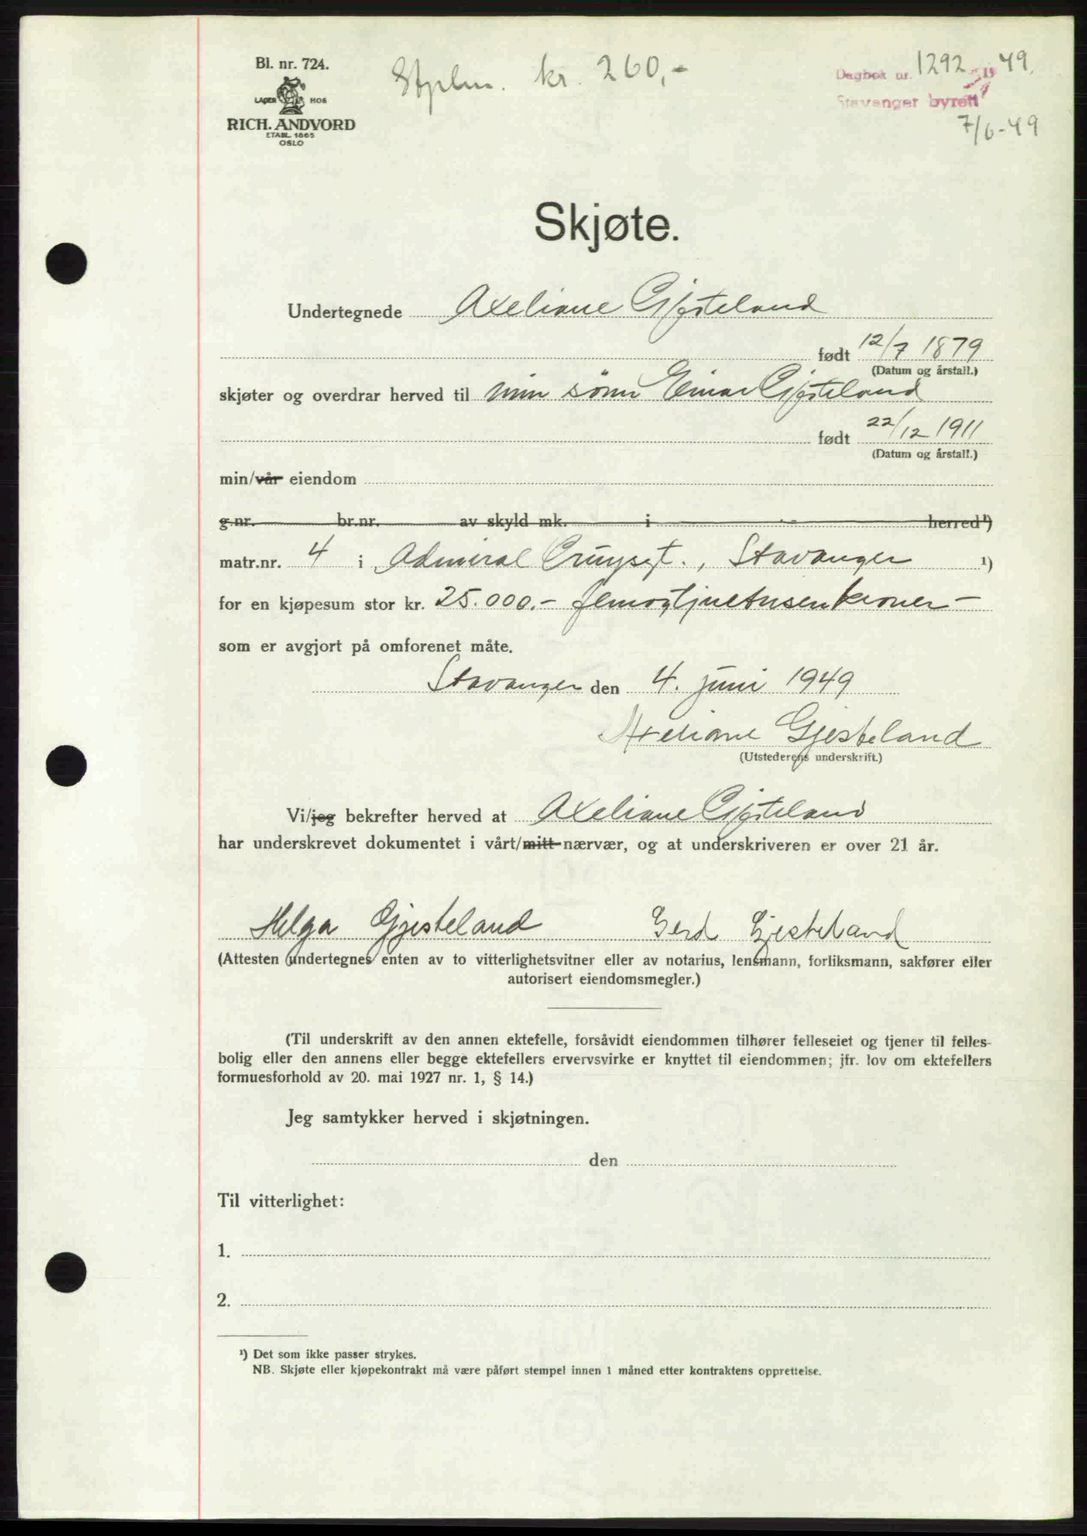 Bl. nr. 724.
LAGER HOS
RICH. ANDVORD
ETABL. 1865
OSLO
kr. 260,-
Dagbok nr. 1292 19 49.
Stavanger byrett
7/6-49
Skjøte.
Undertegnede Axeliane Gjesteland
født 12/7 1879
(Datum og årstall.)
skjøter og overdrar herved til min sønn Einar Gjesteland
født 22/12 1911
(Datum og årstall.)
min/vår eiendom
g.nr. br.nr. av skyld mk. i herred¹)
matr.nr. 4 i Admiral Cruysgt., Stavanger ¹)
for en kjøpesum stor kr. 25.000.- femogtjuetusenkroner-
som er avgjort på omforenet måte.
Stavanger den 4. juni 1949
Axeliane Gjesteland
(Utstederens underskrift.)
Vi/jeg bekrefter herved at Axeliane Gjesteland
har underskrevet dokumentet i vårt/mitt nærvær, og at underskriveren er over 21 år.
Helga Gjesteland Gerd Gjesteland
(Attesten undertegnes enten av to vitterlighetsvitner eller av notarius, lensmann, forliksmann, sakfører eller
autorisert eiendomsmegler.)
(Til underskrift av den annen ektefelle, forsåvidt eiendommen tilhører felleseiet og tjener til felles-
bolig eller den annens eller begge ektefellers ervervsvirke er knyttet til eiendommen; jfr. lov om ektefellers
formuesforhold av 20. mai 1927 nr. 1, § 14.)
Jeg samtykker herved i skjøtningen.
den
Til vitterlighet:
1.
2.
¹) Det som ikke passer strykes.
NB. Skjøte eller kjøpekontrakt må være påført stempel innen 1 måned etter kontraktens opprettelse.